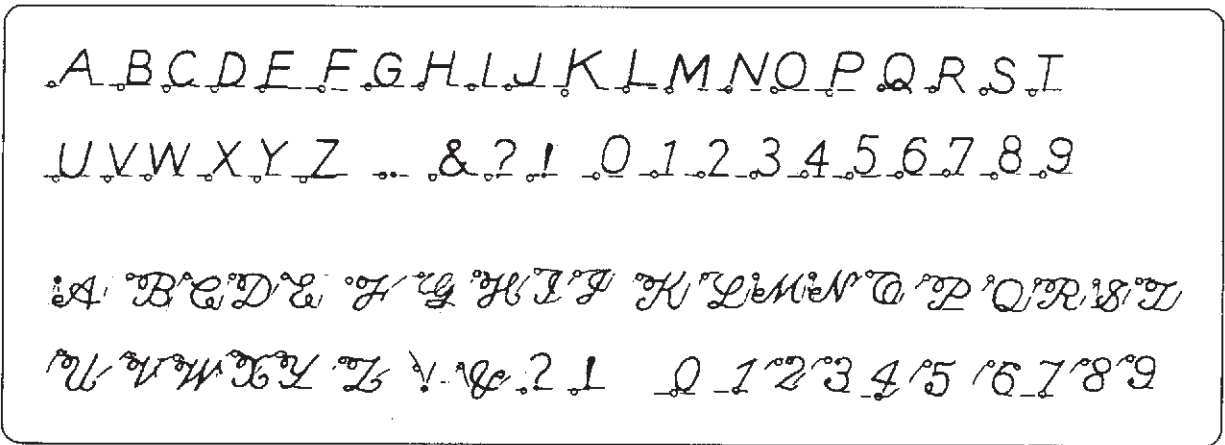 A B C D E F G H I J K L M N O P Q R S T
U V W X Y Z ... & ? ! 0 1 2 3 4 5 6 7 8 9
A B C D E F G H I J K L M N O P Q R S T
U V W X Y Z \. & ? ! 0 1 2 3 4 5 6 7 8 9